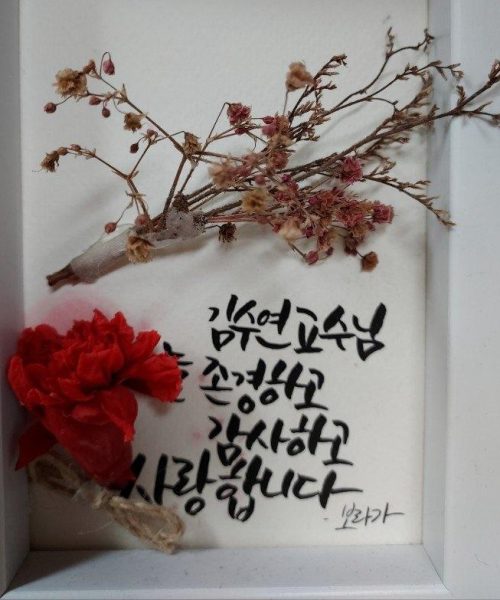 김수연 교수님
존경하고
감사하고
사랑합니다
보라가